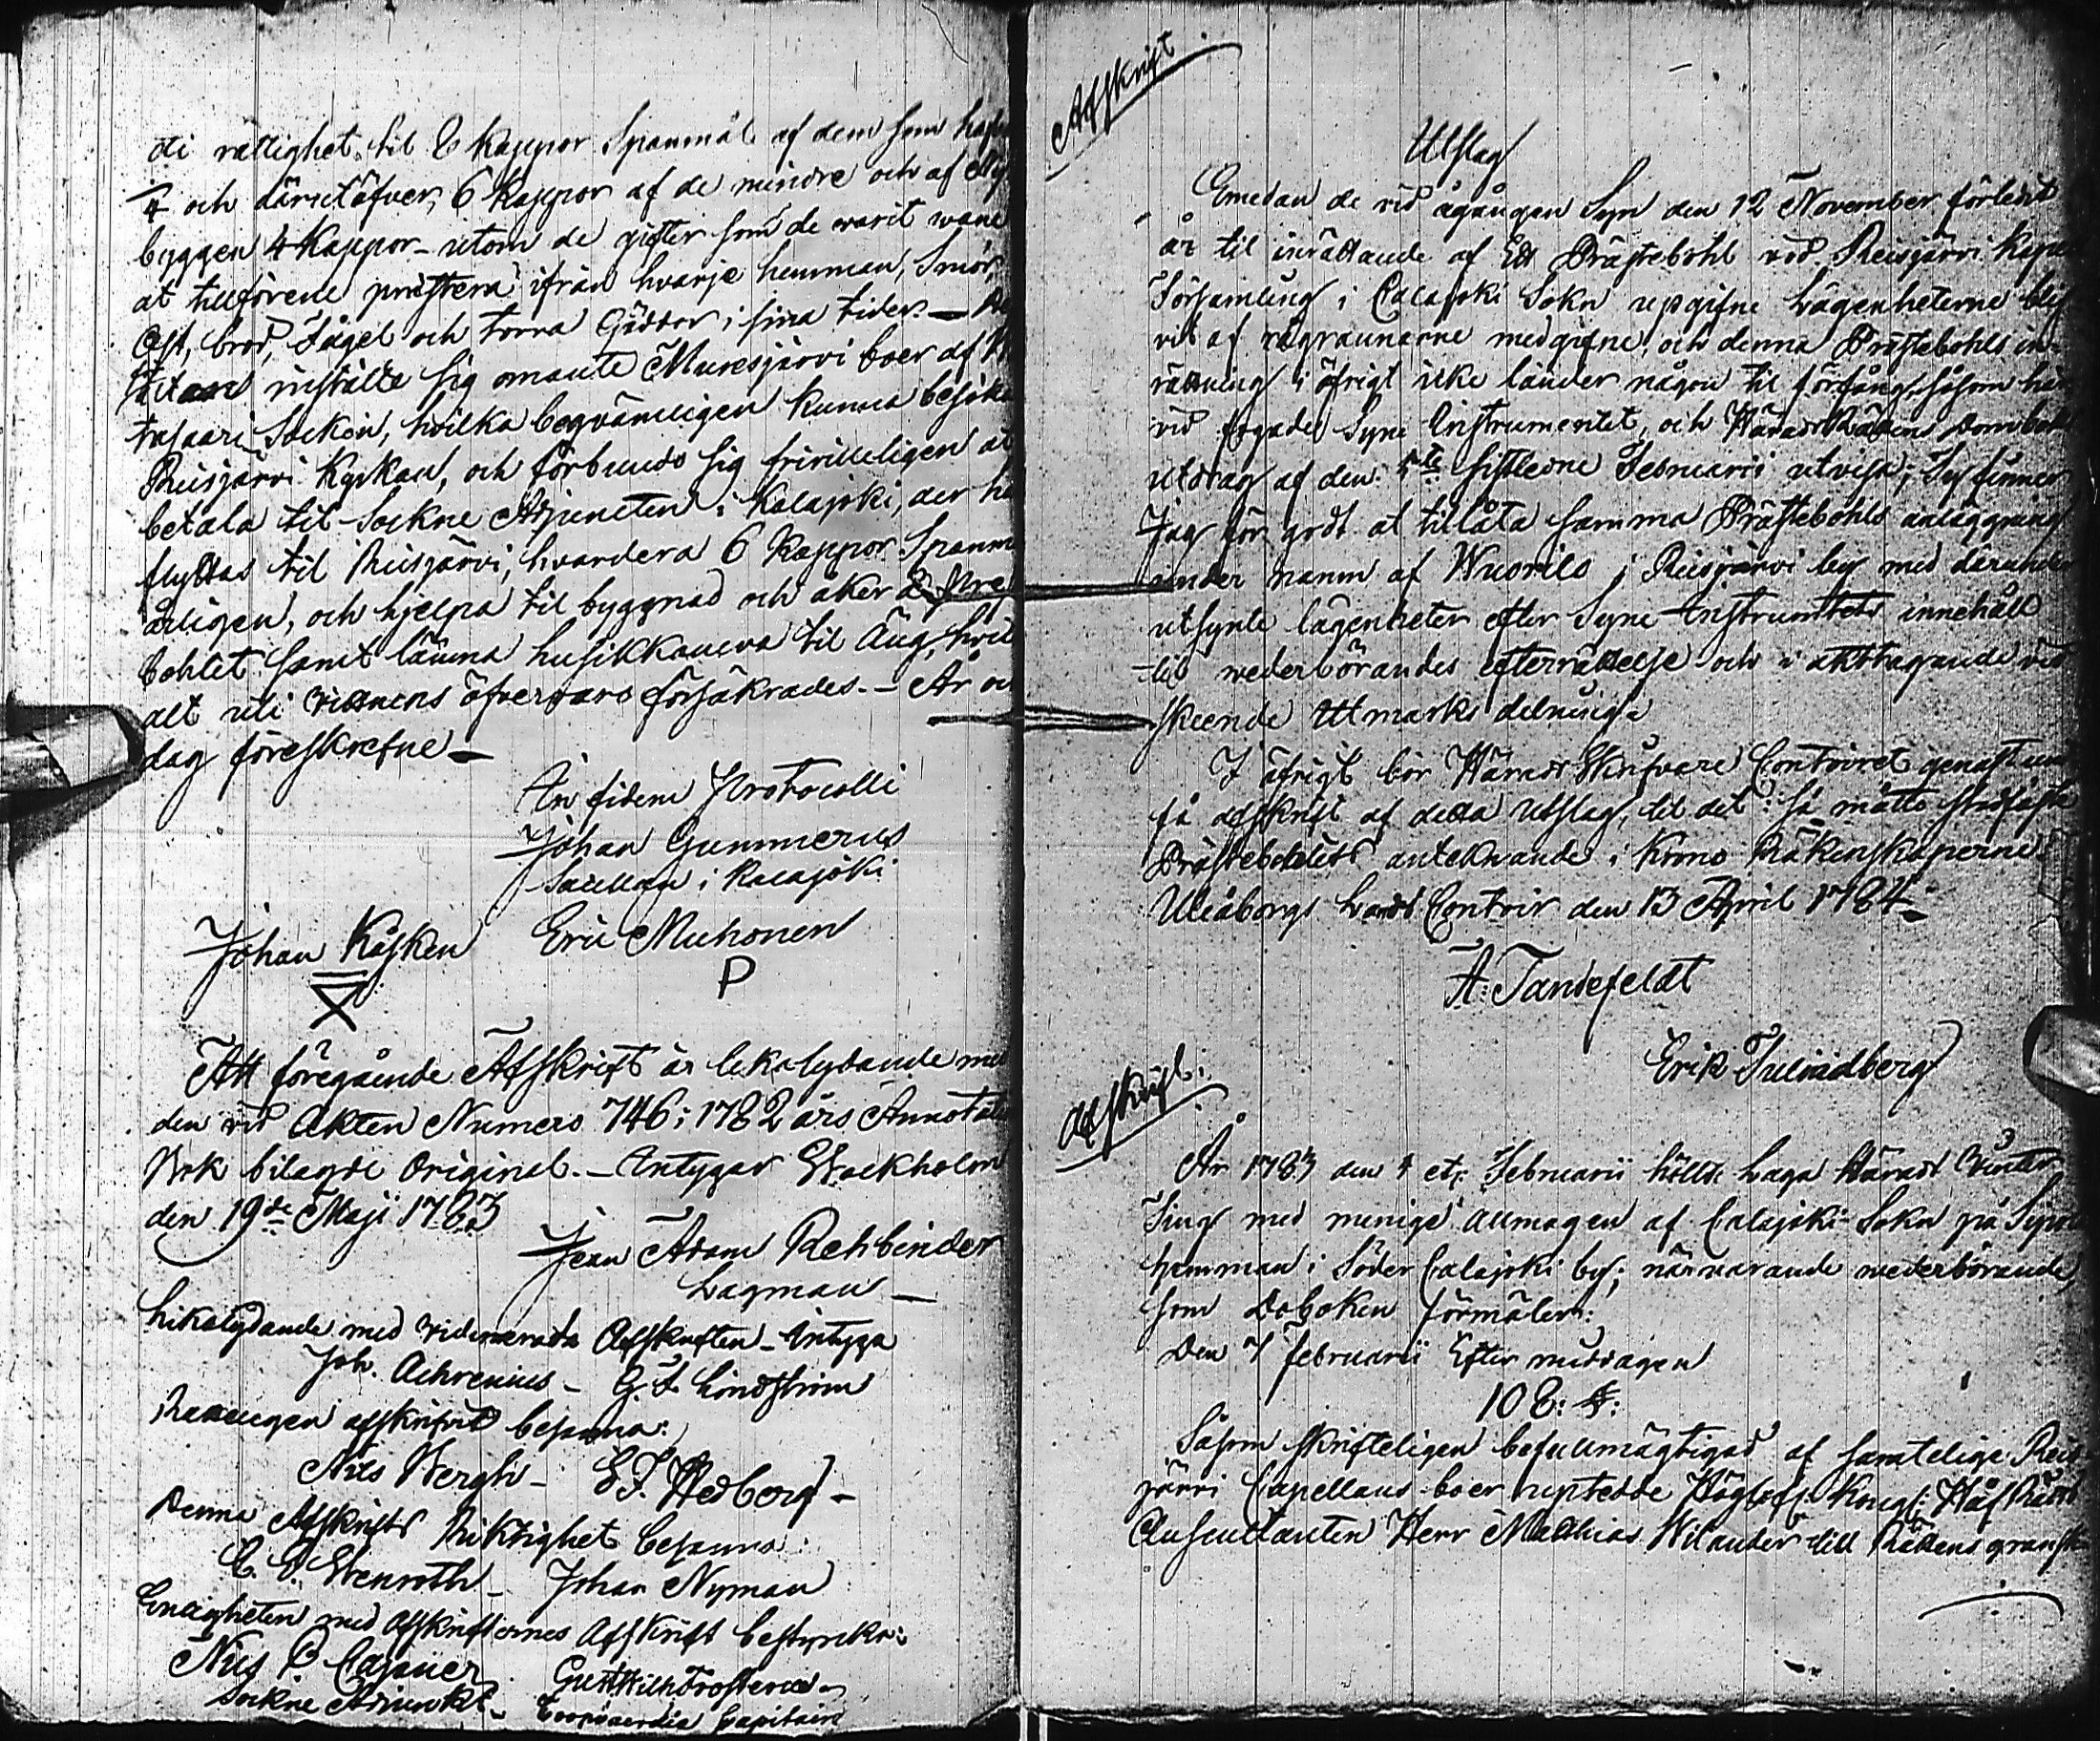 di rättighet til 8 kappor Spanmål af dem som hafva
1/4 och därutöfver, 6 kappor af de mindre och af Ny
byggen 4 Kappor - utom de gifter som de varit wane
at tillförene prästera ifrån hvarje hemman, Smör,
Ost, bröd, Fågel och torra Gäddor i sina tider. —
inställte sig omante Muresjärvi boer af
Socken, hvilka beqvämligen kunna besöka
Reisjärvi Kyrkan, och förbundo sig frivilligen at
betala til Sockne Adjuncten i Kalajoki, der han
flyttas til Reisjärvi, hvardera 6 Kappor Spanm
årligen, och hjelpa til byggnad och åker å Præ
bohlet samt lämna husikkaneva til Äng, hvil
alt uti vittnens öfvervaro försäkrades. - År och
dag föreskrefne —
In fidem Protocolli
Johan Gummerus
Capellan i Kalajoki
Johan Kåsken Eric Muhonen
P
Att föregående Afskrift är lika lydande med
den vid Akten Numero 746: 1782 års Annotation
Bok bilagde Original. - Intygar Stockholm
den 19de Maji 1783
Jean Adam Rehbinder
Lagman —
Likalydande med vidimerade Afskriften - Intyga
Joh. Achrenius - G. F. Lindström
Riktigen afskrifvit besanna:
Nils Bergh - E. F. Hedberg -
Denne Afskrifts Riktighet besanna:
C. G. Wenroth - Johan Nyman
Enligheten med afskrifternes Afskrift bestyrka:
Nils P. Cajaner Gust Wilh Frosterus
Sockne Adjunkt - Coopvaerdie Capitain
Afskrift
Utslag
Emedan de vid ägången Syn den 12 November förledit
år til inrättande af Ett Prästebohl vid Reisjärvi Kapell
Församling i Calajoki Sokn upgifne Lägenheterne blif
vit af rågrannarne medgifne, och denna Prästebohls in
rättning i öfrigt icke länder någon til förfång, såsom här
vid fogade Syne Instrumentet, och Härads Rättens Dombok
utdrag af den 5te sistledne Februarii utvisa; Ty finner
Jag för godt at tillåta samma Prästebohls anläggning
under namn af Wuorila i Reisjärvi by med därunder
utsynte lägenheter efter Syne Instrumentets innehåll
til wederbörandes efterrättelse och i akttagande vid
skeende Utmarks delning.
I öfrigt bör Härads Skrifvare Contoiret genast und
få afskrift af detta Utslag, til det: så måtte stadfäste
Prästebohlets antecknande i Krono Räkenskaperne.
Uleåborgs Lands Contoir den 13 April 1784.
A. Tandefeldt
Erik Tulindberg
Afskrift:
År 1783 den 4 etc. Februarii höllts Laga Härads Vinter
Ting med menige Allmogen af Calajoki Sokn på Sipo
hemman i Söder Calajoki by; närvarande wederbörande,
som Doboken förmäler:
Den 7 februarii Efter middagen
108: §:
Såsom skrifteligen befullmägtigad af samtelige Rei
järvi Capellans boer upstedde Höglofl. Kongl: Håf Rätts
Auscultanten Herr Matthias Wilander till Rättens gransk